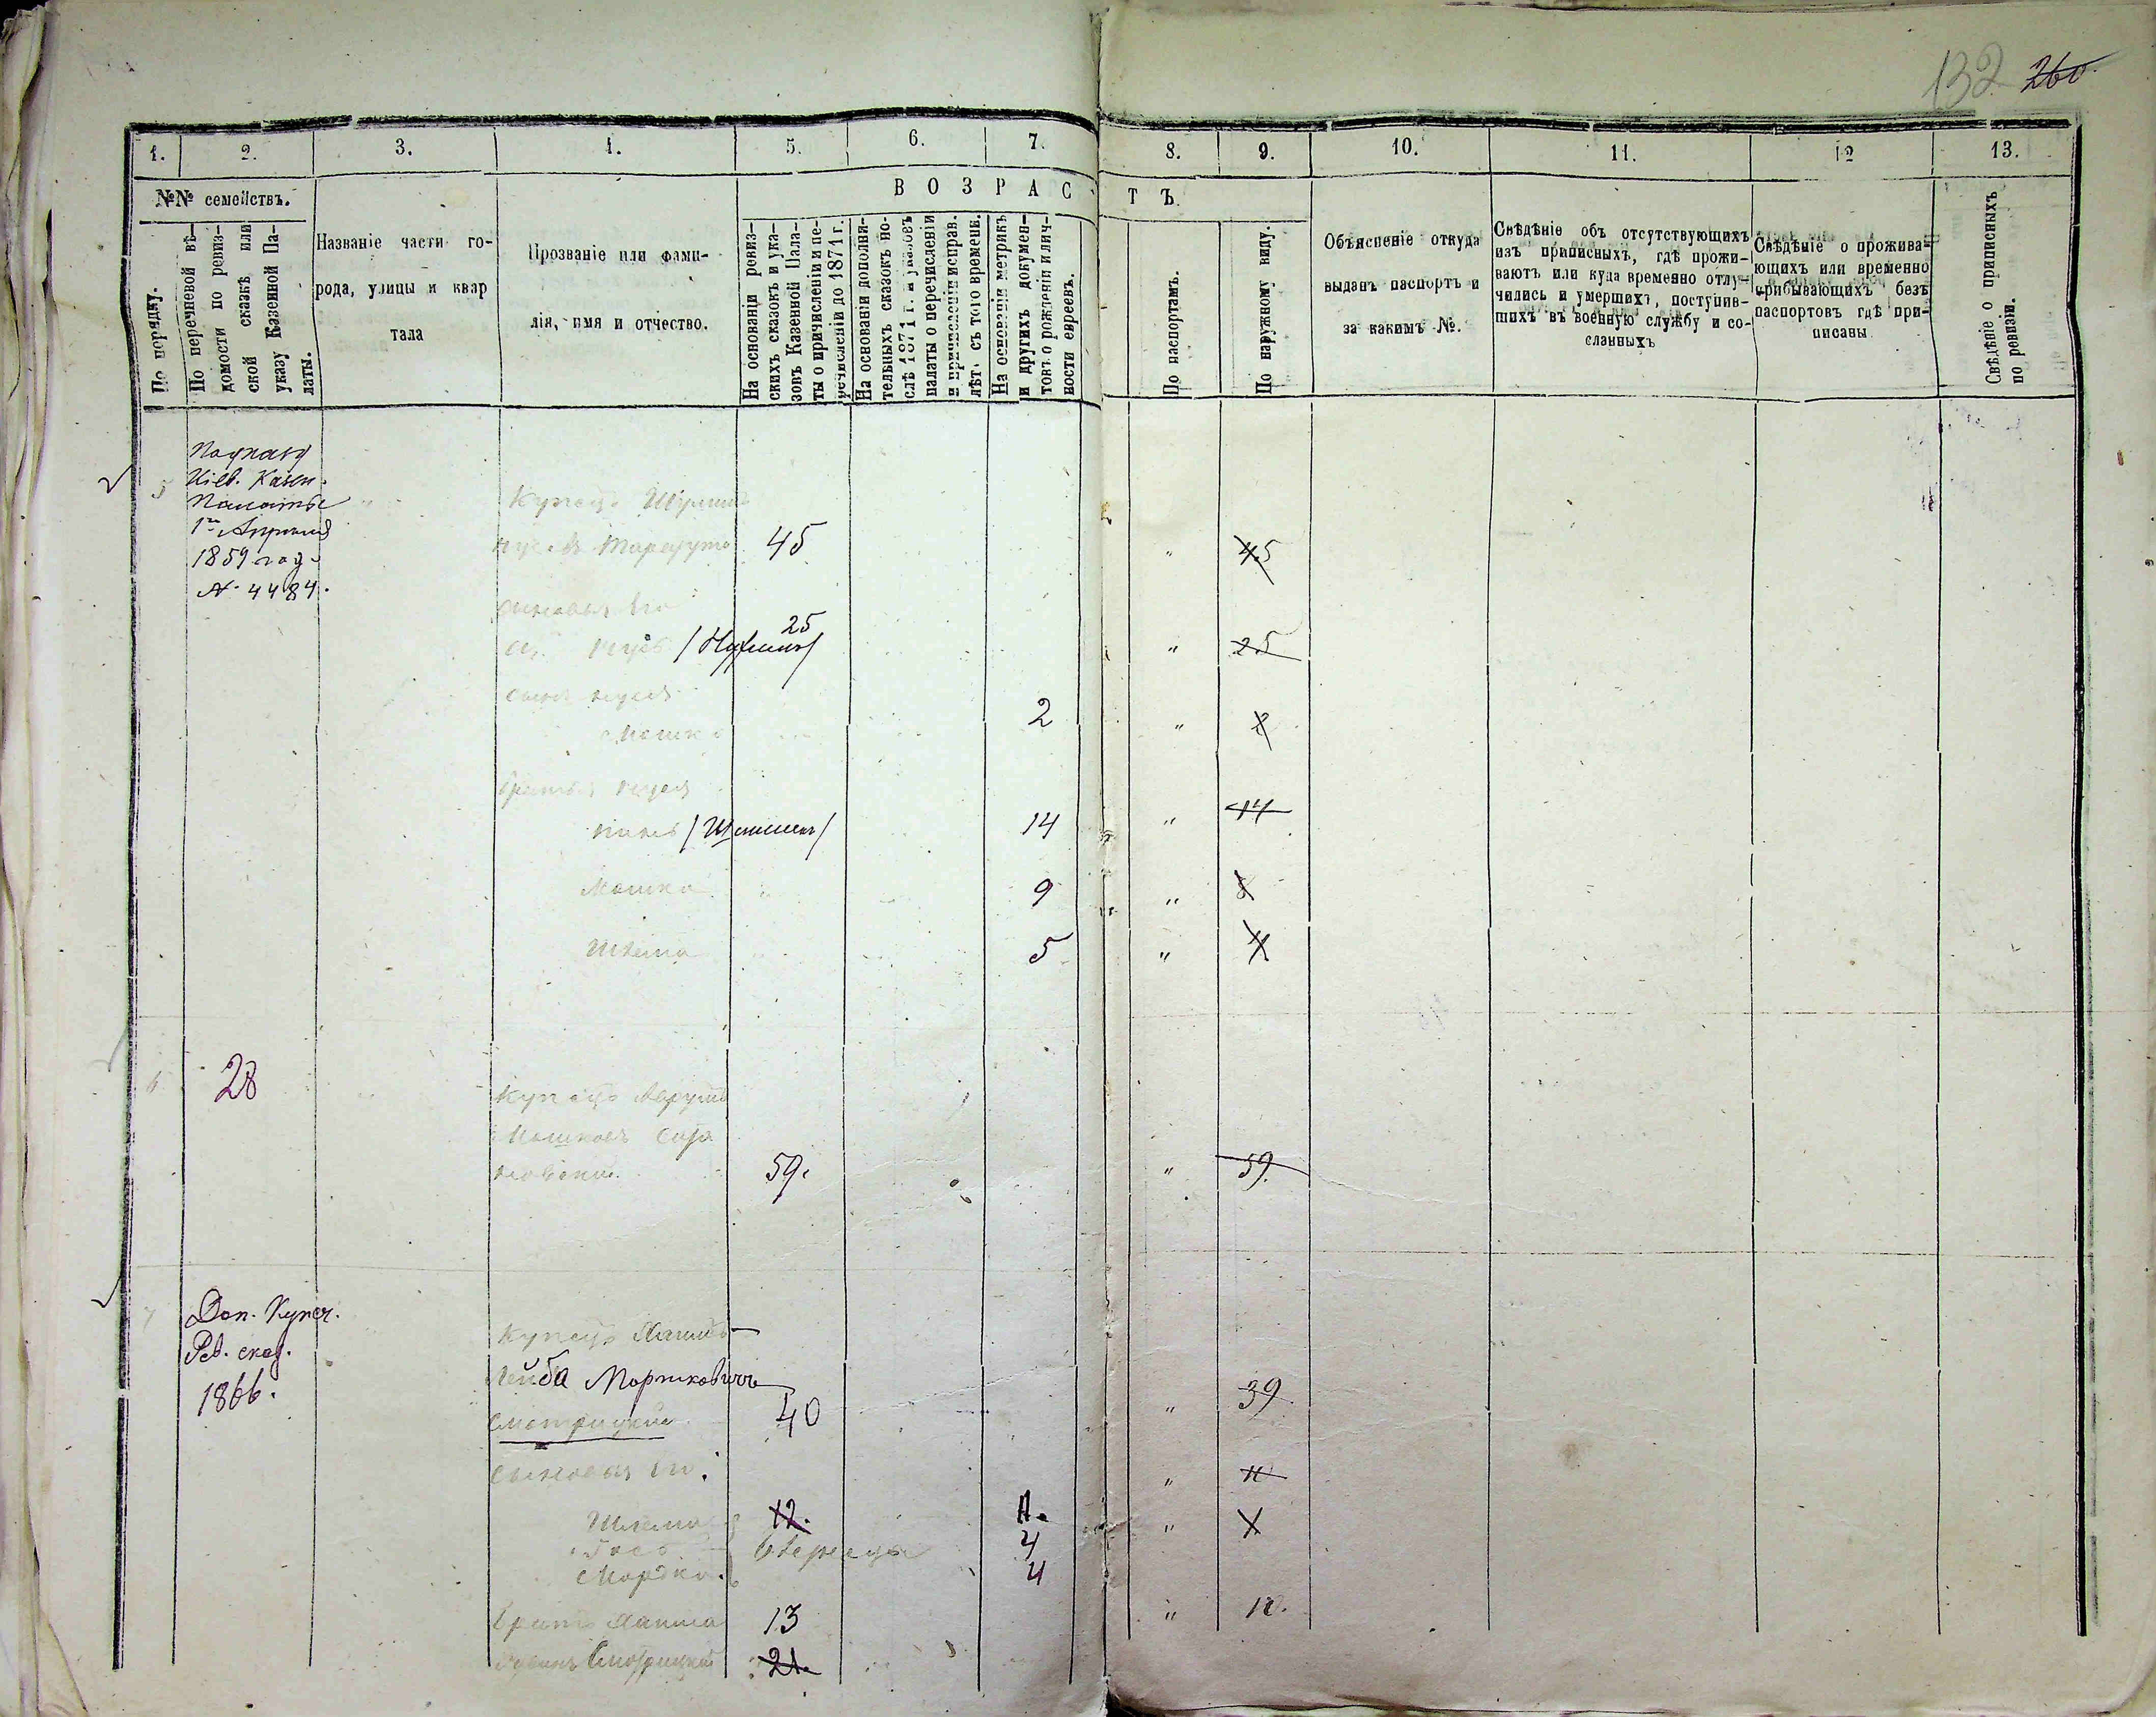 132 260.
1. 2. 3. 4. 5. 6. 7. 8. 9. 10. 11. 12 13.
№№ семействъ.
По порядку.
По перечневой вѣ-
домости по ревиз-
ской сказкѣ или
указу Казенной Па-
латы.
Названіе части го-
рода, улицы и квар
тала
Прозваніе или фами-
лія, имя и отчество.
ВОЗРАСТЪ.
На основаніи ревиз-
скихъ сказокъ и ука-
зовъ Казенной Пала-
ты о причисленіи и пе-
речисленіи до 1871 г.
На основаніи дополни-
тельныхъ сказокъ по-
слѣ 1871 г. и указовъ
палаты о перечисленіи
и причисленіи исправ.
лѣтъ съ того времени.
На основаніи метрикъ
и другихъ докумен-
товъ о рожденіи и лич-
ности евреевъ.
По паспортамъ.
По наружному виду.
Объясненіе откуда
выданъ паспортъ и
за какимъ №.
Свѣдѣніе объ отсутствующихъ
изъ приписныхъ, гдѣ прожи-
ваютъ или куда временно отлу-
чились и умершихъ, поступив-
шихъ въ военную службу и со-
сланныхъ
Свѣдѣніе о прожива-
ющихъ или временно
прибывающихъ безъ
паспортовъ гдѣ при-
писаны
Свѣдѣніе о приписныхъ
по ревизіи.
5 По указу
Кіев. Казен.
Палаты
1го Апреля
1859 год
№ 4484.
Купецъ
45 " 45
сыновья его
25 " 25
сынъ нуся
Мошко 2 " 2
братья нуся
14 " 14
Мошко 9 "
Шлема 5 " 4
6 28 Купецъ Аврумъ
Мошковъ
59. " 59.
7 Доп. Купеч.
Рев. сказ.
1866.
Купецъ Хаимъ-
Лейба Мортковичъ
Смотрицкій 40 " 39
сыновья его. "
Шлема 12. 11. "
4
Мордко 4
братъ Хаима 13 " 10.
Смотрицкій 21.